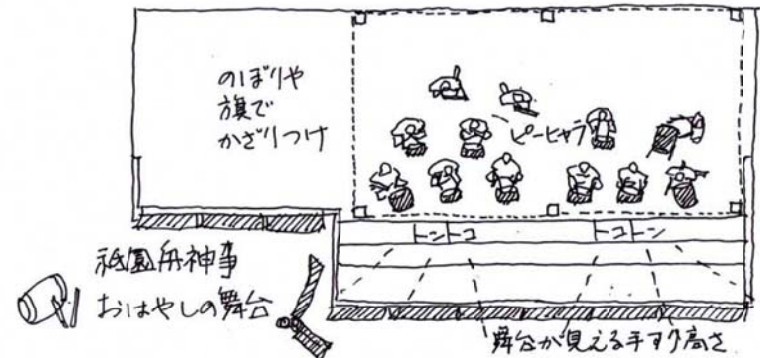 のぼりや
旗で
かざりつけ
ピーヒャラ
トントコ
トコトン
祇園舟神事
おはやしの舞台
舞台が見える手すり高さ